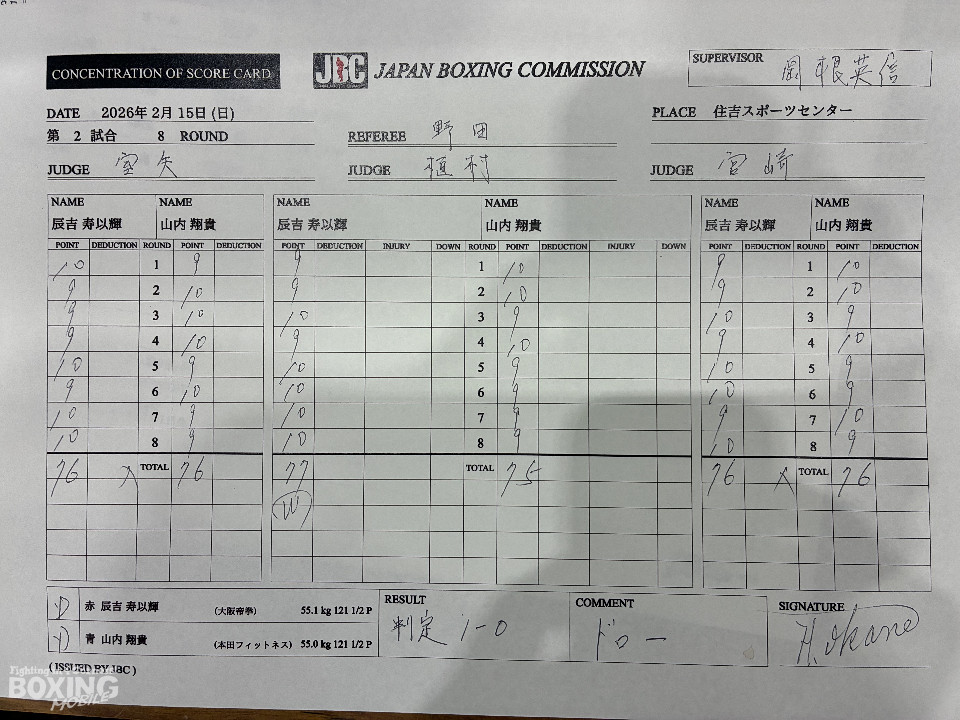 CONCENTRATION OF SCORE CARD
JBC JAPAN BOXING COMMISSION
SUPERVISOR 関根英信
DATE 2026年 2月 15日 (日)
PLACE 住吉スポーツセンター
第 2 試合 8 ROUND
REFEREE 野田
JUDGE 室矢 JUDGE 植村 JUDGE 宮崎
NAME NAME NAME NAME NAME NAME
辰吉 寿以輝 山内 翔貴 辰吉 寿以輝 山内 翔貴 辰吉 寿以輝 山内 翔貴
POINT DEDUCTION ROUND POINT DEDUCTION POINT DEDUCTION INJURY DOWN ROUND POINT DEDUCTION INJURY DOWN POINT DEDUCTION ROUND POINT DEDUCTION
10 1 9 9 1 10 9 1 10
9 2 10 9 2 10 9 2 10
9 3 10 10 3 9 10 3 9
9 4 10 9 4 10 9 4 10
10 5 9 10 5 9 10 5 9
9 6 10 10 6 9 10 6 9
10 7 9 10 7 9 9 7 10
10 8 9 10 8 9 10 8 9
76 TOTAL 76 77 TOTAL 75 76 TOTAL 76
W
D 赤 辰吉 寿以輝 (大阪帝拳) 55.1 kg 121 1/2 P
D 青 山内 翔貴 (本田フィットネス) 55.0 kg 121 1/2 P
RESULT
判定 1-0
COMMENT
ドロー
SIGNATURE
(ISSUED BY JBC)
BOXING
MOBILE